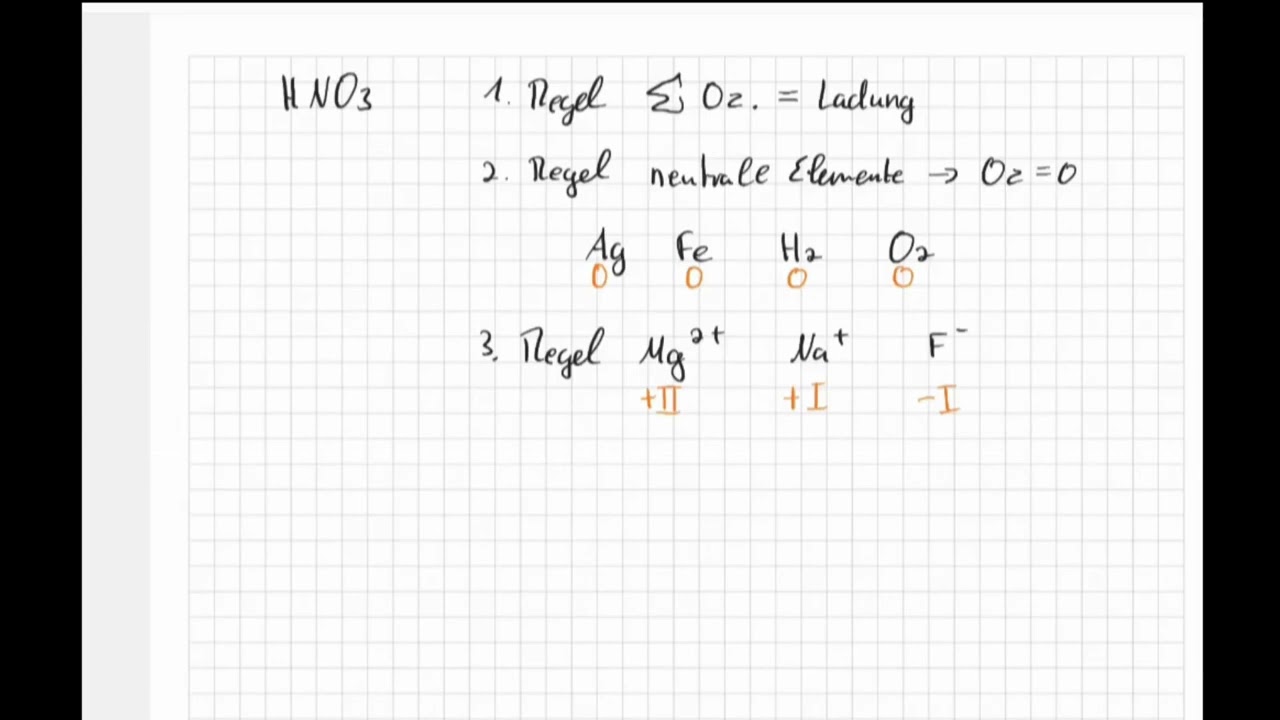 HNO3 1. Regel Σ Oz. = Ladung
2. Regel neutrale Elemente → Oz = 0
Ag Fe H2 O2
0 0 0 0
3. Regel Mg2+ Na+ F-
+II +I -I